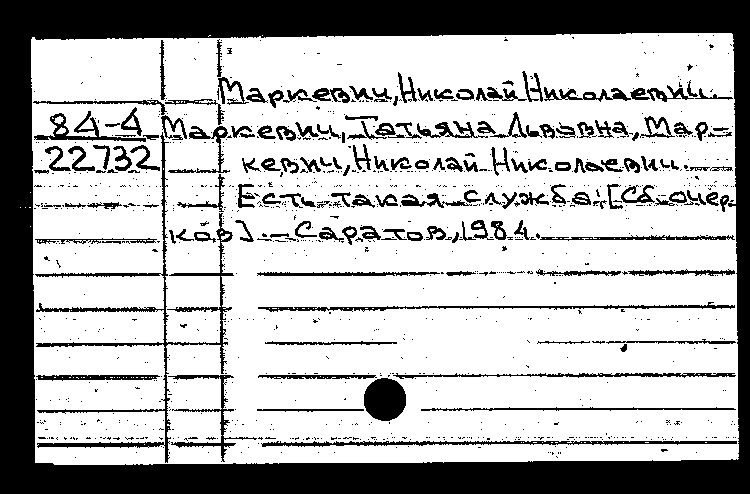 Маркевич, Николай Николаевич.
84-4 Маркевич, Татьяна Львовна, Мар-
22732 кевич, Николай Николаевич.
Есть такая служба: [Сб. очер-
ков]. - Саратов, 1984.